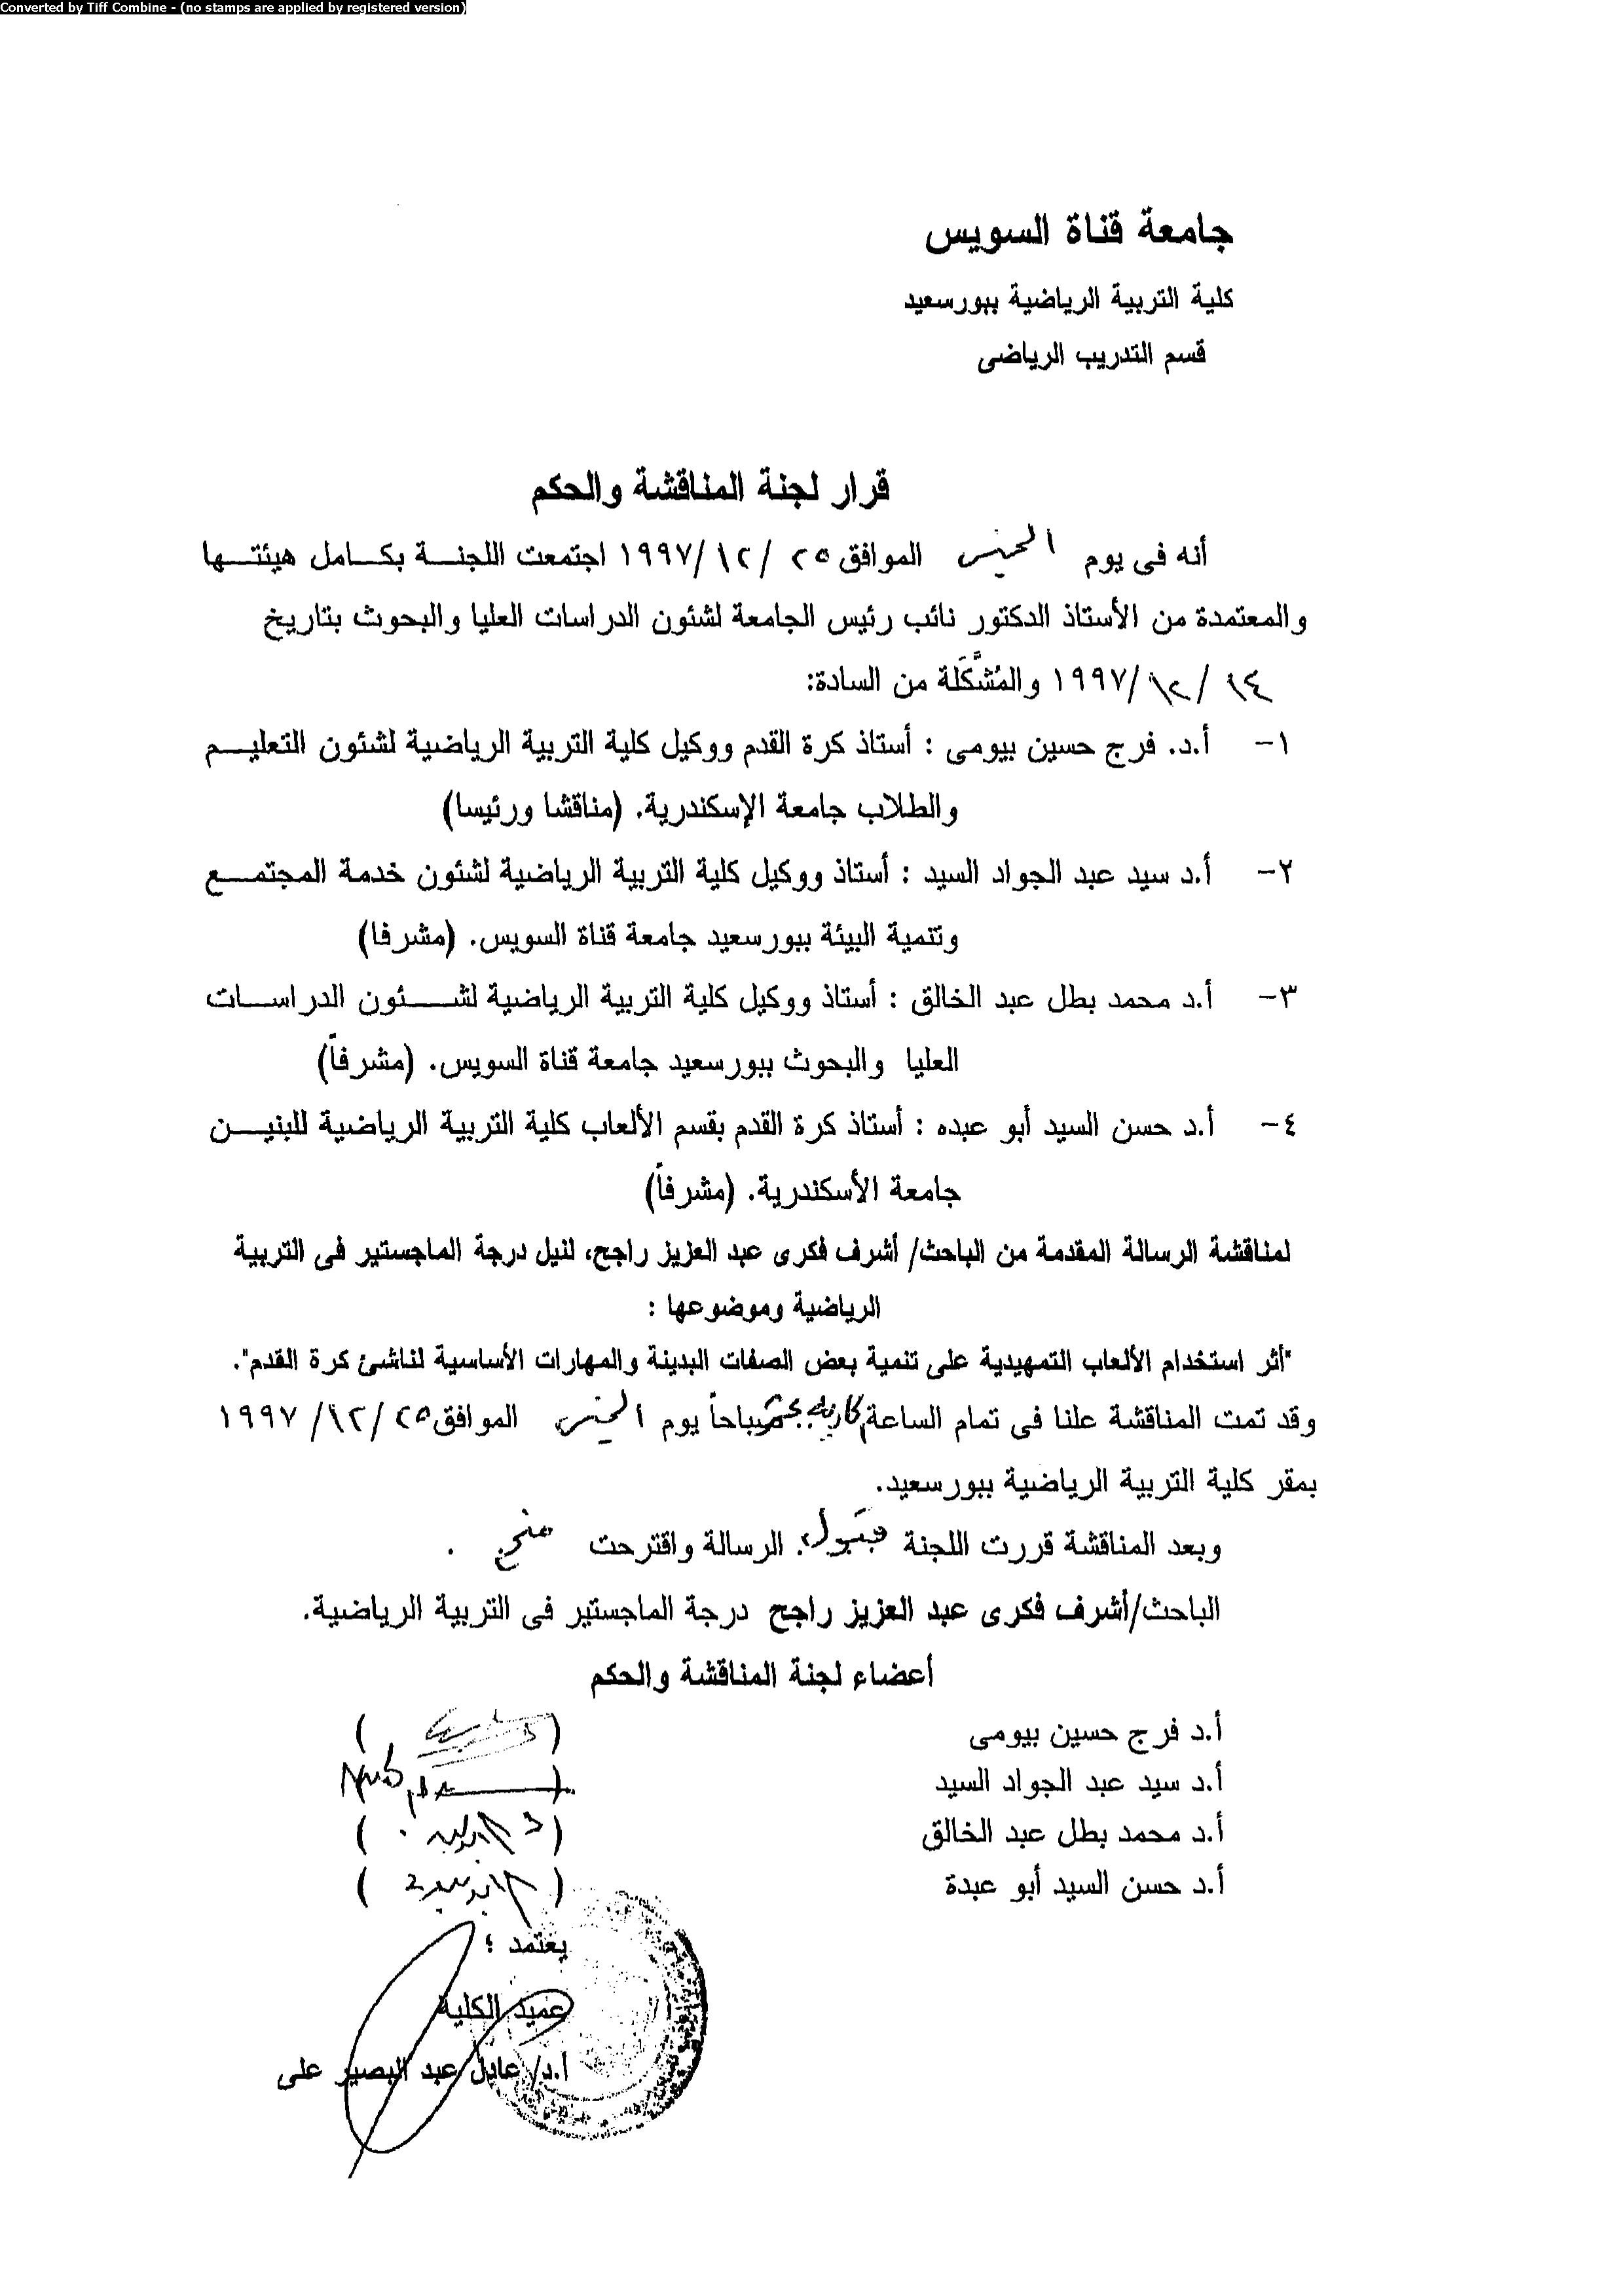 Converted by Tiff Combine - (no stamps are applied by registered version)
جامعة قناة السويس
كلية التربية الرياضية ببورسعيد
قسم التدريب الرياضى
قرار لجنة المناقشة والحكم
أنه فى يوم الخميس الموافق ٢٥ /١٢/ ١٩٩٧ اجتمعت اللجنة بكامل هيئتها
والمعتمدة من الأستاذ الدكتور نائب رئيس الجامعة لشئون الدراسات العليا والبحوث بتاريخ
١٤ /١٢/ ١٩٩٧ والمُشَّكَلة من السادة:
١- أ.د. فرج حسين بيومى : أستاذ كرة القدم ووكيل كلية التربية الرياضية لشئون التعليم
والطلاب جامعة الإسكندرية. (مناقشا ورئيسا)
٢- أ.د سيد عبد الجواد السيد : أستاذ ووكيل كلية التربية الرياضية لشئون خدمة المجتمع
وتنمية البيئة ببورسعيد جامعة قناة السويس. (مشرفا)
٣- أ.د محمد بطل عبد الخالق : أستاذ ووكيل كلية التربية الرياضية لشئون الدراسات
العليا والبحوث ببورسعيد جامعة قناة السويس. (مشرفاً)
٤- أ.د حسن السيد أبو عبده : أستاذ كرة القدم بقسم الألعاب كلية التربية الرياضية للبنين
جامعة الأسكندرية. (مشرفاً)
لمناقشة الرسالة المقدمة من الباحث/ أشرف فكرى عبد العزيز راجح، لنيل درجة الماجستير فى التربية
الرياضية وموضوعها :
"أثر استخدام الألعاب التمهيدية على تنمية بعض الصفات البدينة والمهارات الأساسية لناشئ كرة القدم".
وقد تمت المناقشة علنا فى تمام الساعة صباحاً يوم الخميس الموافق ٢٥ /١٢/ ١٩٩٧
بمقر كلية التربية الرياضية ببورسعيد.
وبعد المناقشة قررت اللجنة قبول الرسالة واقترحت منح .
الباحث/أشرف فكرى عبد العزيز راجح درجة الماجستير فى التربية الرياضية.
أعضاء لجنة المناقشة والحكم
أ.د فرج حسين بيومى ( )
أ.د سيد عبد الجواد السيد ( )
أ.د محمد بطل عبد الخالق ( )
أ.د حسن السيد أبو عبدة ( )
يعتمد ؛
عميد الكلية
أ.د/ عادل عبد البصير على